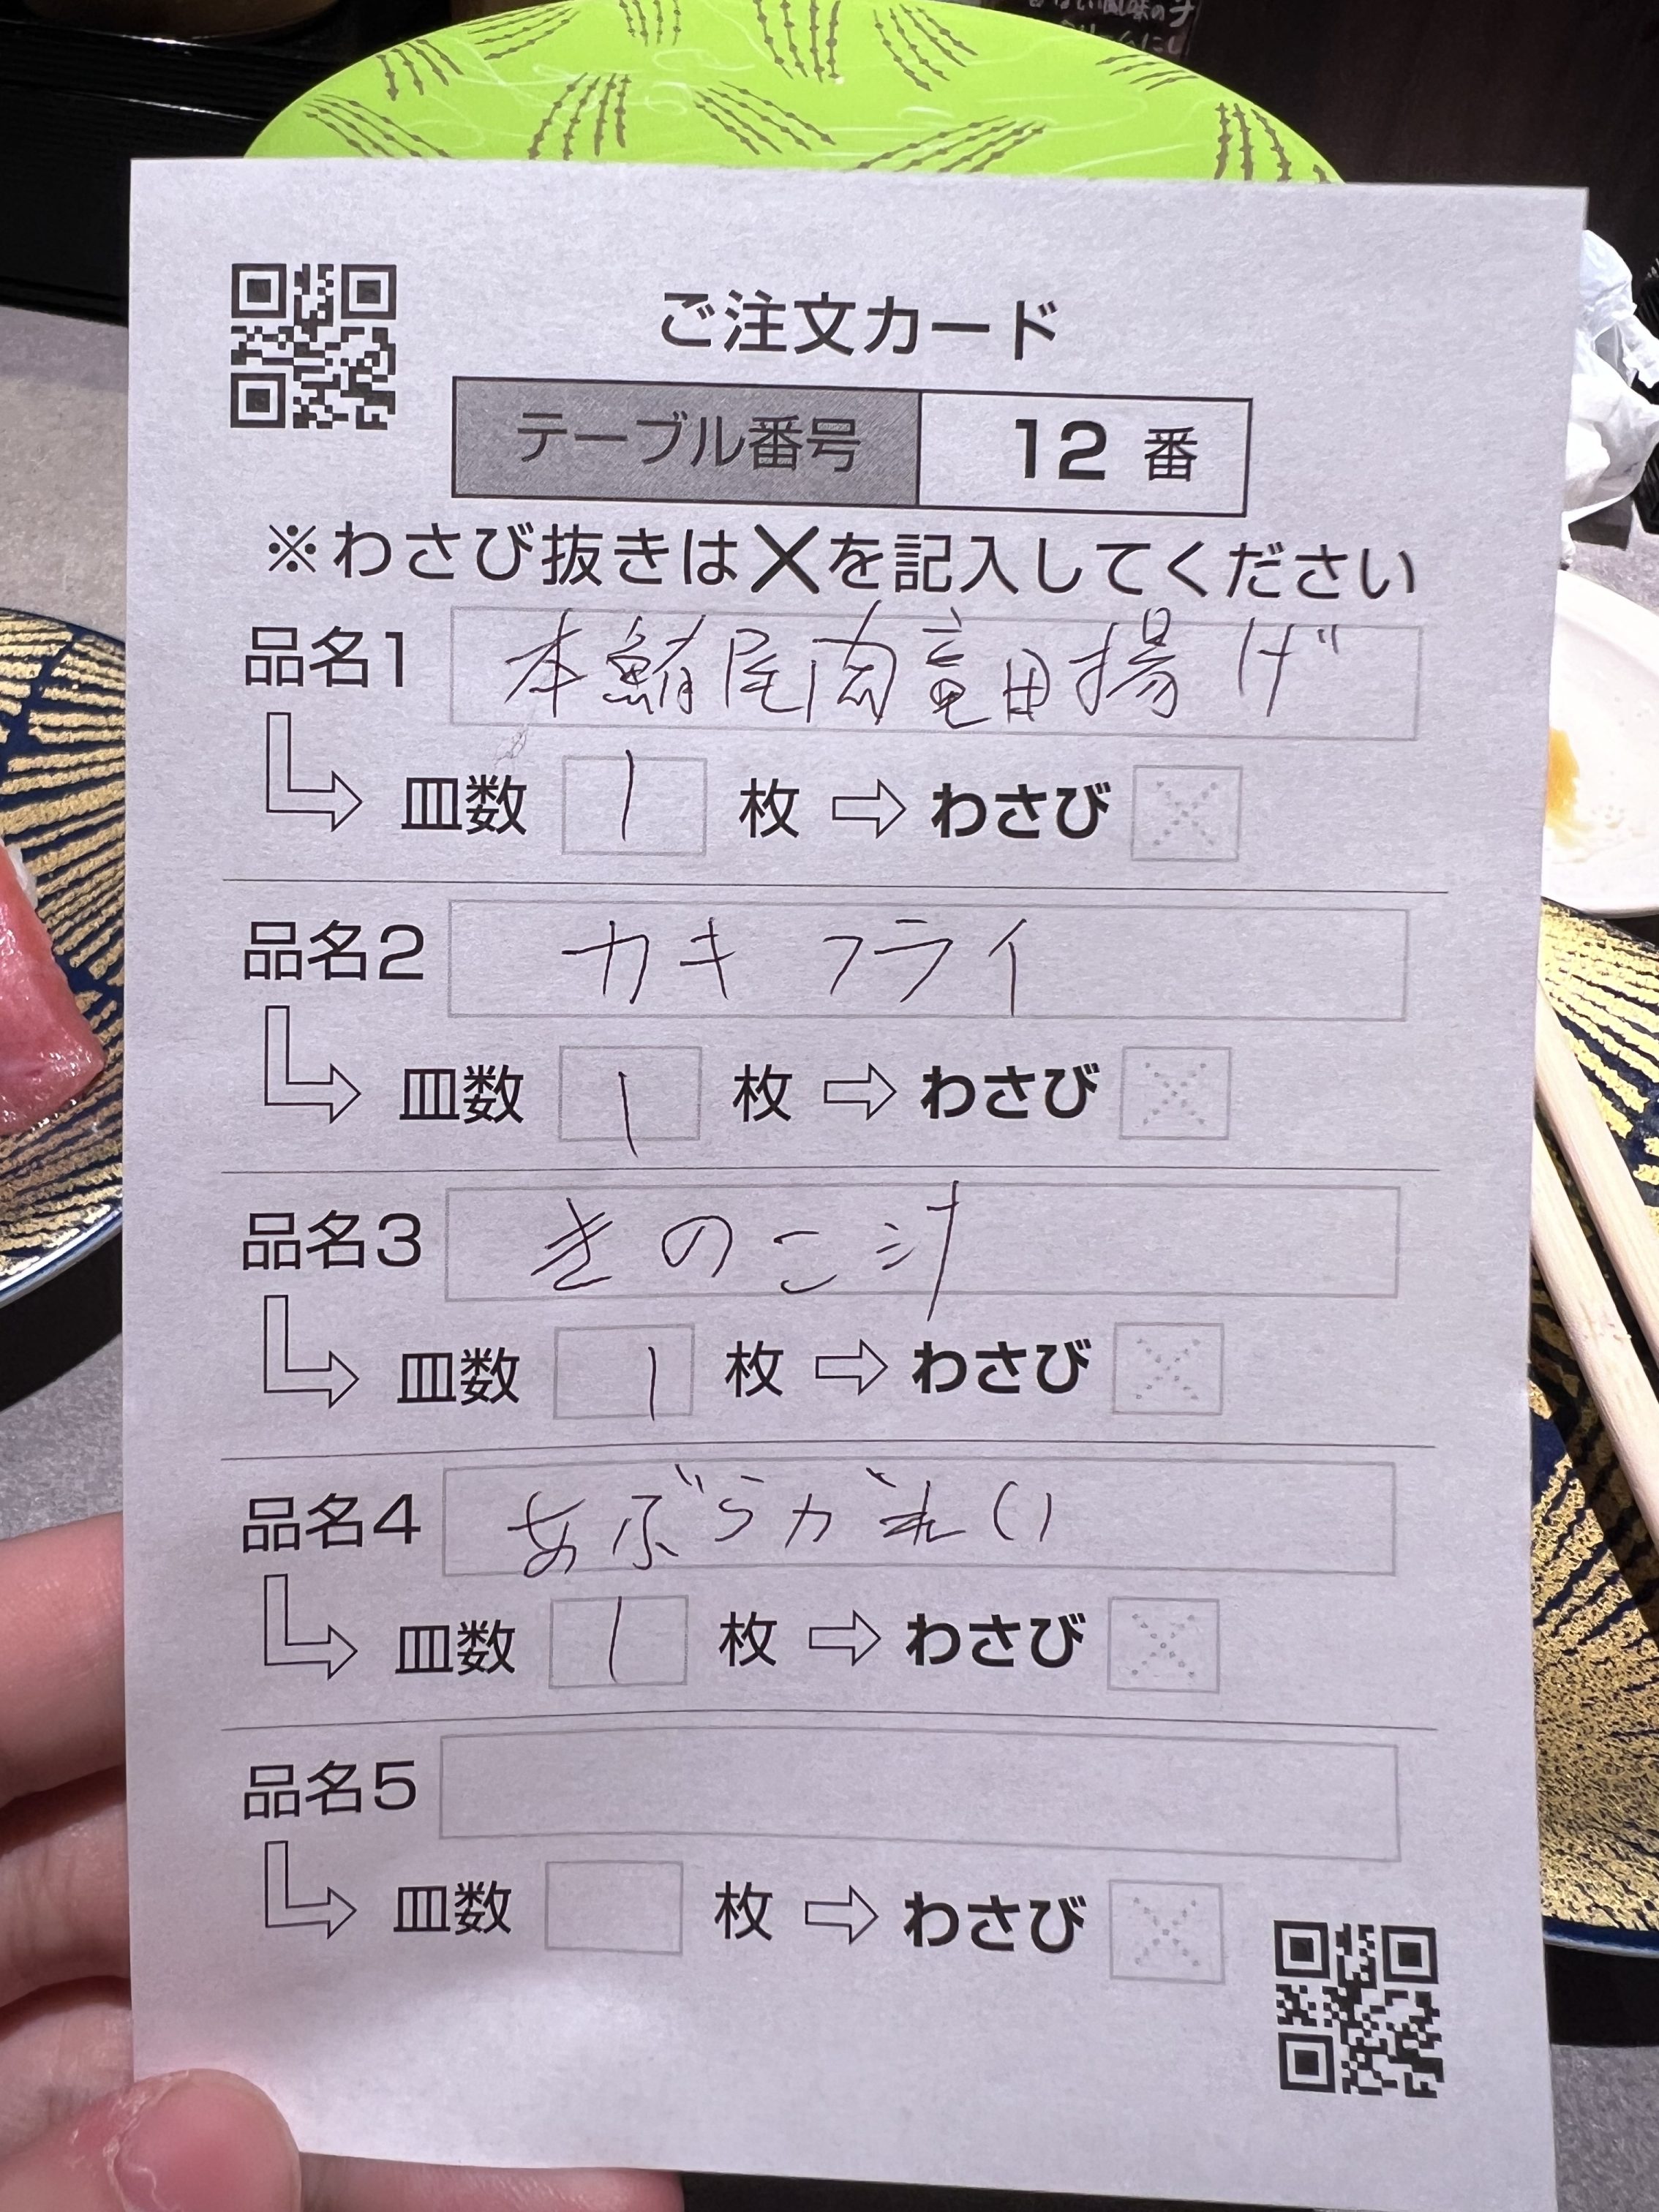 ご注文カード
テーブル番号 12 番
※わさび抜きは✕を記入してください
品名1 本鮪尾肉竜田揚げ
皿数 1 枚 ⇨ わさび
品名2 カキフライ
皿数 1 枚 ⇨ わさび
品名3 きのこ汁
皿数 1 枚 ⇨ わさび
品名4 あぶらがれい
皿数 1 枚 ⇨ わさび
品名5
皿数 枚 ⇨ わさび